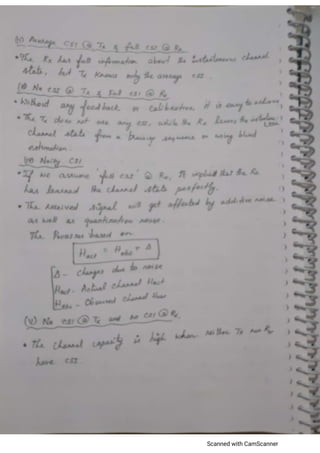 (ii) Average CSI @ Tx & full CSI @ Rx
• The Rx has full information about the instantaneous channel
state, but Tx knows only the average CSI.
(iii) No CSI @ Tx & Full CSI @ Rx
• Without any feedback or calibration it is easy to achieve
• The Tx does not use any CSI, while the Rx learns the
channel state from a training sequence or using blind
estimation.
(iv) Noisy CSI
• If we assume 'full CSI' @ Rx, It implies that the Rx
has learned the channel state perfectly.
• The received signal will get affected by additive noise
as well as quantization noise.
The Process based on
Hact = Hobs + Δ
Δ - changes due to noise
Hact - Actual channel
Hobs - Observed channel
(v) No CSI @ Tx and no CSI @ Rx.
• The channel capacity is high when neither Tx nor Rx
have CSI
Scanned with CamScanner